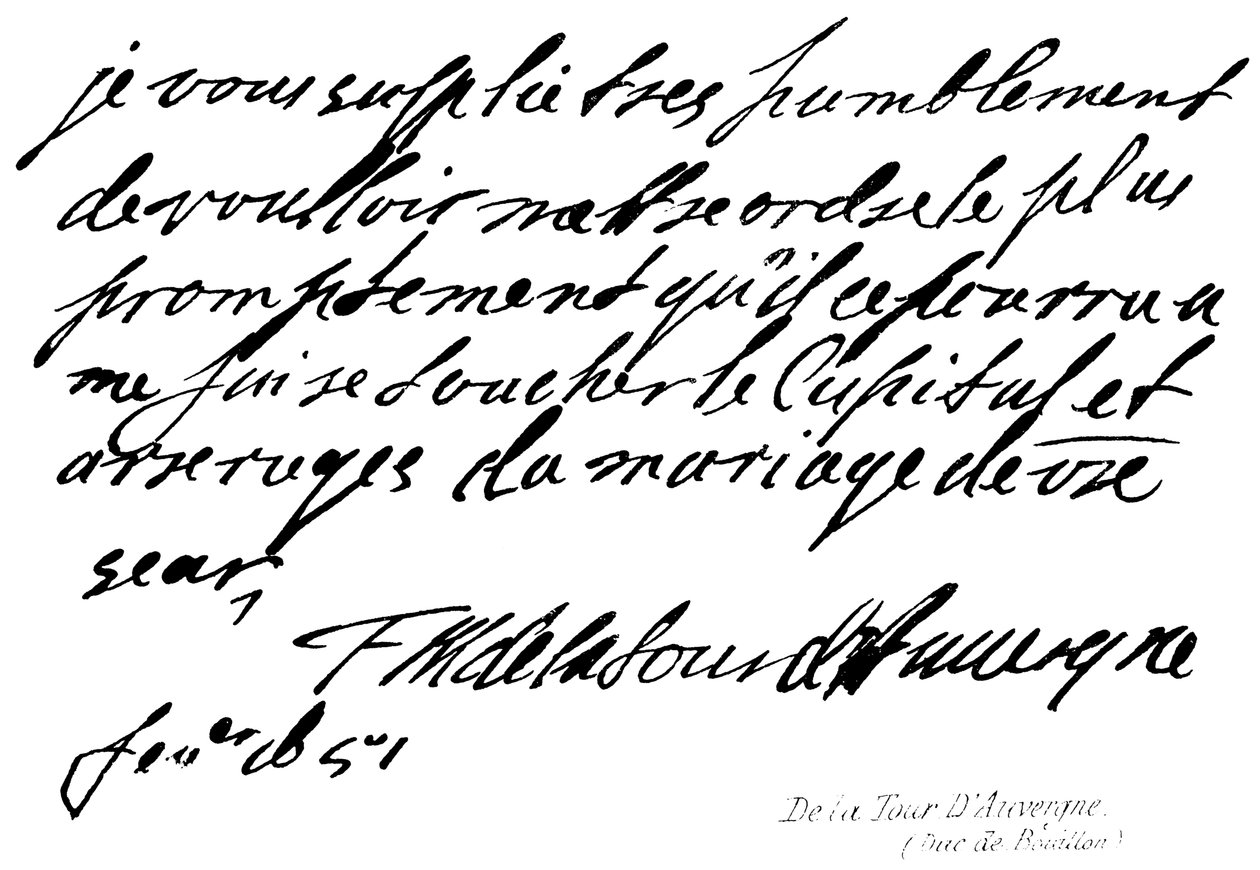 je vous supplie tres humblement
de voulloir mettre ordre le plus
promptement qu'il ce pourra a
me faire toucher le Capital et
arrerages du mariage de vre
sear
F M de la Tour d'Auvergne
feuer 1651
De la Tour D'Auvergne.
(Duc de Bouillon)